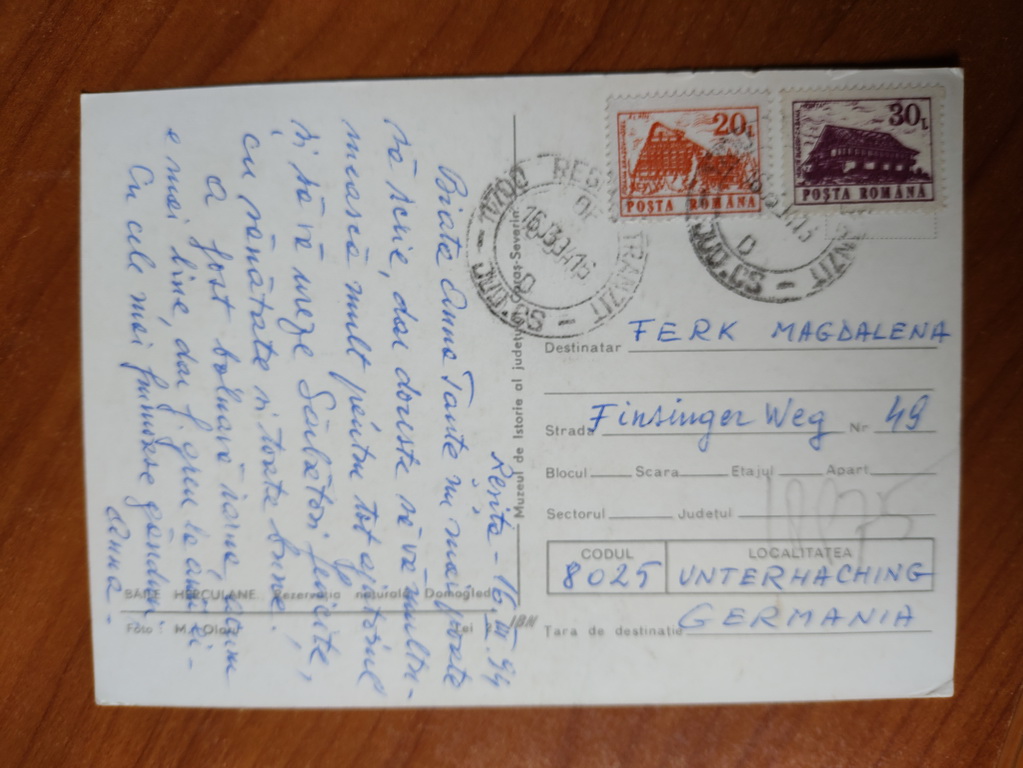 Reșița - 16.III.94
Biata Anna Tante nu mai poate
să scrie, dar dorește să vă mulțu-
mească mult pentru tot ajutorul
și să vă ureze Sărbători fericite,
cu sănătate și toate bune!
A fost bolnavă iarna, acum
e mai bine, dar f. greu la anii ei -
Cu cele mai frumoase gânduri
Anna -
BĂILE HERCULANE Rezervația naturală Domogled
Foto : M.
Lei
Muzeul de Istorie al județului Caraș-Severin
1700 REȘIȚA
TRANZIT
JUD.CS
D
20L
POȘTA ROMÂNĂ
30L
POȘTA ROMÂNĂ
TRANZIT
JUD.CS
D
Destinatar FERK MAGDALENA
Strada Finsinger Weg Nr 49
Blocul Scara Etajul Apart
Sectorul Județul
CODUL LOCALITATEA
8025 UNTERHACHING
Țara de destinație GERMANIA